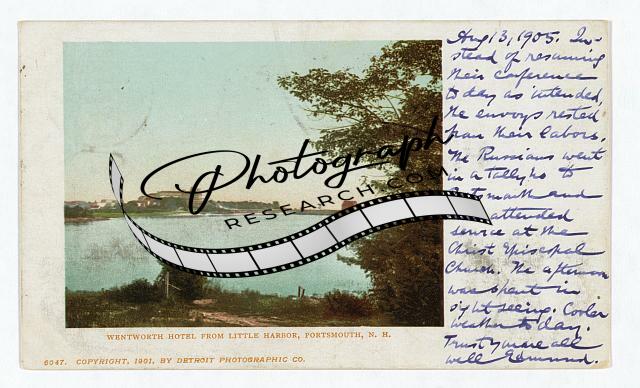 Aug 13, 1905. In-
stead of resuming
their conference
to day as intended,
the envoys rested
from their labors.
The Russians went
in a Tallyho to
Portsmouth and
attended
service at the
Christ Episcopal
Church. The afternoon
was spent in
sight seeing. Cooler
weather to day.
Trust you are all
well Edmund.
Photograph
RESEARCH.COM
WENTWORTH HOTEL FROM LITTLE HARBOR, PORTSMOUTH, N. H.
6047. COPYRIGHT, 1901, BY DETROIT PHOTOGRAPHIC CO.